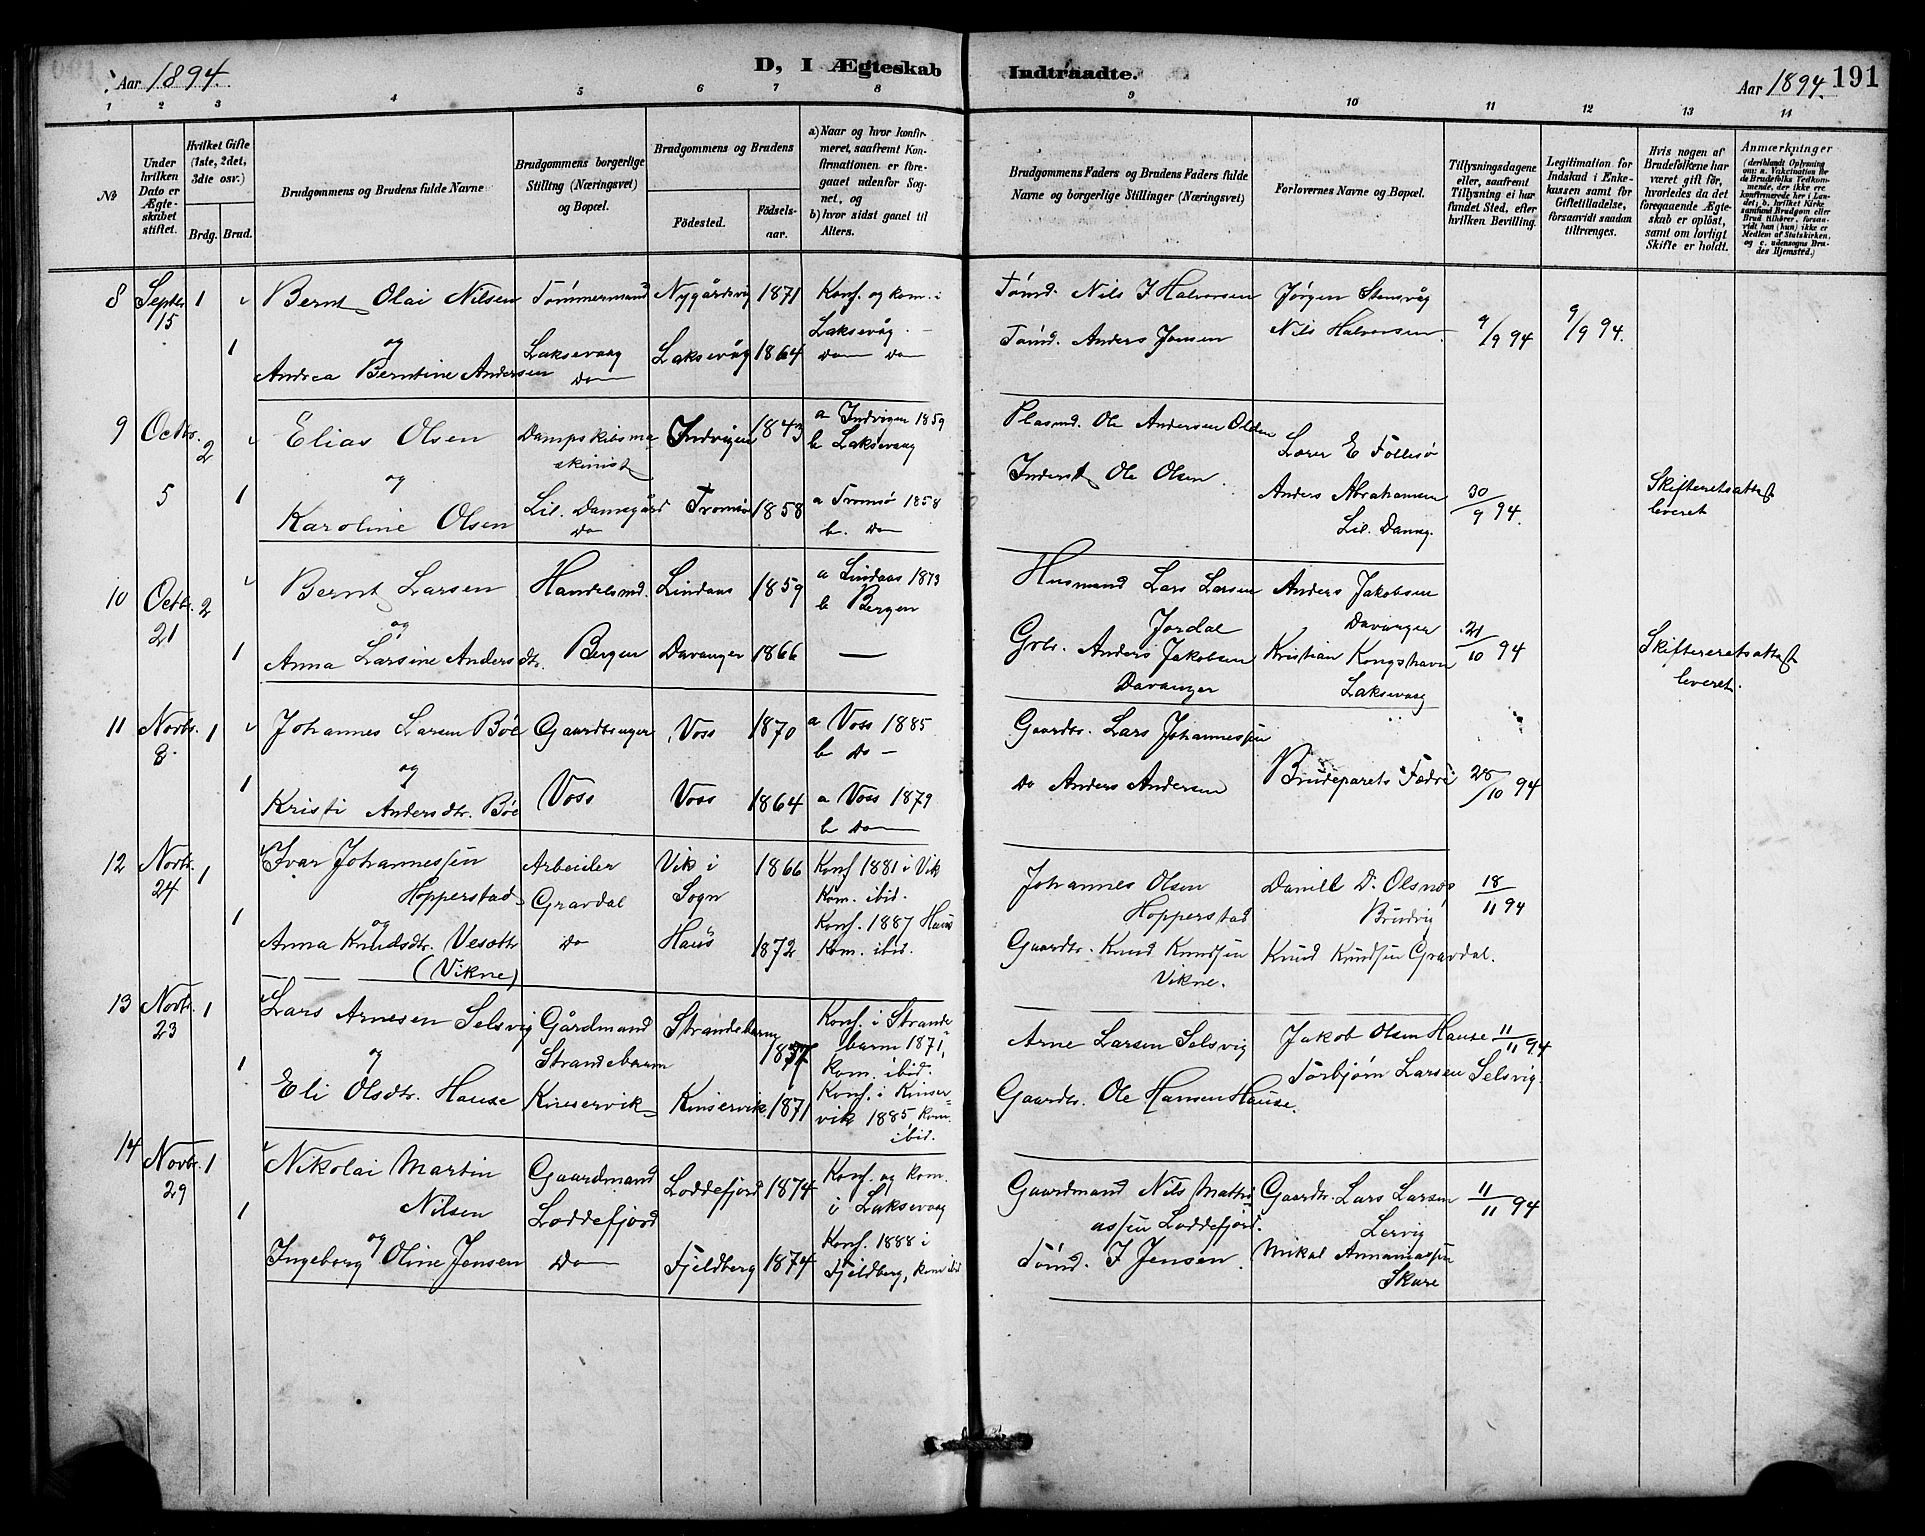 Aar 1894.
D, I Ægteskab
Indtraadte.
Aar 1894.
191
1 2 3 4 5 6 7 8 9 10 11 12 13 14
No
Under hvilken Dato er Ægteskabet stiftet.
Hvilket Gifte (1ste, 2det, 3die osv.)
Brdg. Brud.
Brudgommens og Brudens fulde Navne
Brudgommens borgerlige Stilling (Næringsvei) og Bopæl.
Brudgommens og Brudens
Födested.
Födselsaar.
a) Naar og hvor konfirmeret, saafremt Konfirmationen er foregaaet udenfor Sognet, og
b) hvor sidst gaaet til Alters.
Brudgommens Faders og Brudens Faders fulde Navne og borgerlige Stillinger (Næringsvei)
Forlovernes Navne og Bopæl.
Tillysningsdagene eller, saafremt Tillysning ei har fundet Sted, efter hvilken Bevilling.
Legitimation for Indskud i Enkekassen samt for Giftetilladelse, forsaavidt saadan tiltrænges.
Hvis nogen af Brudefolkene har været gift för, hvorledes da det foregaaende Ægteskab er oplöst, samt om lovligt Skifte er holdt.
Anmærkninger (deriblandt Oplysning om: a. Vakcination for de Brudefolks Vedkommende, der ikke ere konfirmerede her i Landet; b. hvilket Kirkesamfund Brudgom eller Brud tilhörer, forsaavidt han (hun) ikke er Medlem af Statskirken, og c. udensogns Brudes Hjemsted.)
8 Septbr. 15 1 Bernt Olai Nilsen Tømmermand Nygårdsvig 1871 Konf. og kom. i Laksevåg
og Laksevaag
1 Andrea Berntine Andersen do Laksevåg 1864 do do
Tømd. Nils J Halvorsen Jørgen Stensvåg
Tømd. Anders Jansen Nils Halvorsen 9/9 94 9/9 94.
9 Octbr. 5 2 Elias Olsen Dampskibsmaskinist Indvigen 1843 a Indvigen 1859 b Laksevaag
og Lil. Damsgård
1 Karoline Olsen do Tromsø 1858 a Tromsø 1858 b. do
Plasmd. Ole Andersen Olden Lærer E Follesø
Inderst Ole Olsen. Anders Abrahamsen Lil. Damsg. 30/9 94. Skifteretsattest leveret
10 Octbr. 21 2 Bernt Larsen Handelsmd. Lindaas 1859 a Lindaas 1873 b Bergen
og
1 Anna Larsine Andersdtr. Bergen Davanger 1866 —
Husmand Lars Larsen Jordal Anders Jakobsen Davanger
Grbr. Anders Jakobsen Davanger Kristian Kongshavn Laksevaag 21/10 94 Skifteretsattest leveret.
11 Novbr. 8. 1 Johannes Larsen Bøe Gaardbruger Voss 1870 a Voss 1885 b do —
og
1 Kristi Andersdtr. Bøe Voss Voss 1864 a Voss 1879 b do
Gaardbr. Lars Johannessen
do Anders Andersen Brudeparets Fædre 28/10 94
12 Novbr. 24 1 Ivar Johannessen Hopperstad Arbeider Gravdal Vik i Sogn 1866 Konf 1881 i Vik Kom. ibid.
og
1 Anna Knudsdtr. (Vikne) do Haus 1872 Konf. 1887 Haus Kom. ibid.
Johannes Olsen Hopperstad Daniel D. Olsnes Bruvig 18/11 94
Gaardbr. Knud Knudsen Vikne. Knud Knudsen Gravdal.
13 Novbr. 23 1 Lars Arnesen Selsvig Gårdmand Strandebarm Strandebarm Konf. i Strandebarm 1871, kom. ibid.
og
1 Eli Olsdtr. Hause Kinservik Kinservik 1871 Konf. i Kinservik 1885, kom. ibid.
Arne Larsen Selsvig Jakob Olsen Hause 11/11 94
Gaardbr. Ole Hansen Hause. Torbjørn Larsen Selsvig.
14 Novbr. 29 1 Nikolai Martin Nilsen Gaardmand Loddefjord Loddefjord 1874 Konf. og kom. i Laksevaag
og
1 Ingeborg Oline Jensen do Fjeldberg 1874 Konf. 1888 i Fjeldberg, kom ibid
Gaardmand Nils Mathiassen Loddefjord. Gaardbr. Lars Larsen Lervig 11/11 94
Tømd. J Jensen. Mikal Annaniassen Skare